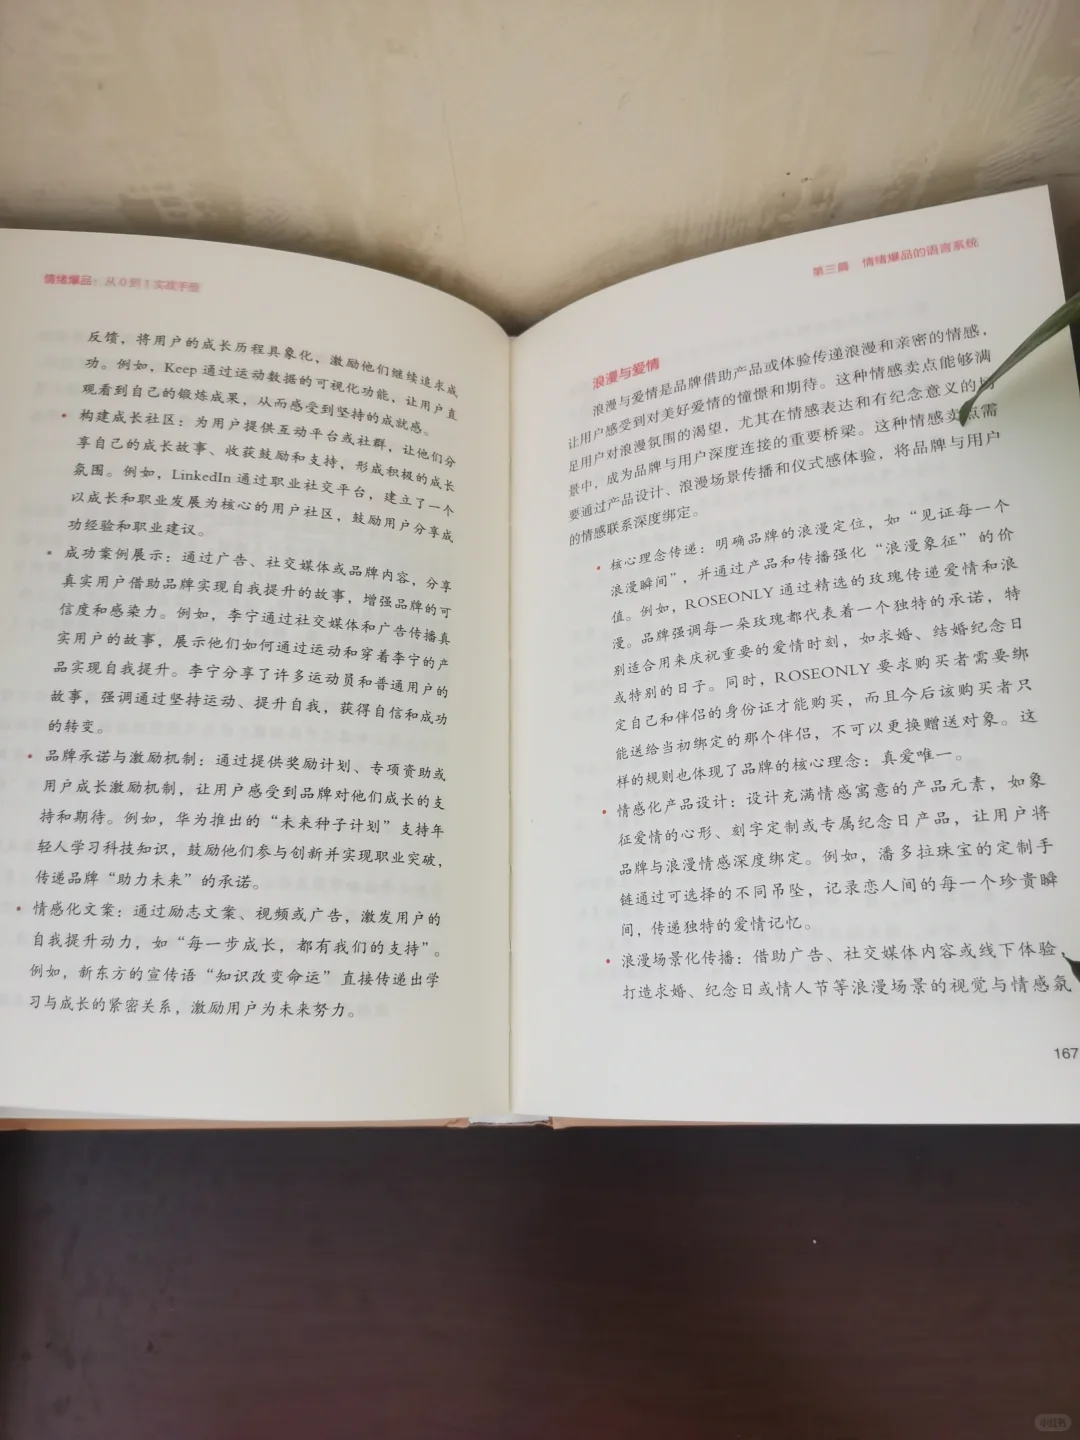 情绪爆品：从0到1实战手册
反馈，将用户的成长历程具象化，激励他们继续追求成
功。例如，Keep 通过运动数据的可视化功能，让用户直
观看到自己的锻炼成果，从而感受到坚持的成就感。
• 构建成长社区：为用户提供互动平台或社群，让他们分
享自己的成长故事、收获鼓励和支持，形成积极的成长
氛围。例如，LinkedIn 通过职业社交平台，建立了一个
以成长和职业发展为核心的用户社区，鼓励用户分享成
功经验和职业建议。
• 成功案例展示：通过广告、社交媒体或品牌内容，分享
真实用户借助品牌实现自我提升的故事，增强品牌的可
信度和感染力。例如，李宁通过社交媒体和广告传播真
实用户的故事，展示他们如何通过运动和穿着李宁的产
品实现自我提升。李宁分享了许多运动员和普通用户的
故事，强调通过坚持运动、提升自我，获得自信和成功
的转变。
• 品牌承诺与激励机制：通过提供奖励计划、专项资助或
用户成长激励机制，让用户感受到品牌对他们成长的支
持和期待。例如，华为推出的“未来种子计划”支持年
轻人学习科技知识，鼓励他们参与创新并实现职业突破，
传递品牌“助力未来”的承诺。
• 情感化文案：通过励志文案、视频或广告，激发用户的
自我提升动力，如“每一步成长，都有我们的支持”。
例如，新东方的宣传语“知识改变命运”直接传递出学
习与成长的紧密关系，激励用户为未来努力。
第三篇 情绪爆品的语言系统
浪漫与爱情
浪漫与爱情是品牌借助产品或体验传递浪漫和亲密的情感，
让用户感受到对美好爱情的憧憬和期待。这种情感卖点能够满
足用户对浪漫氛围的渴望，尤其在情感表达和有纪念意义的
景中，成为品牌与用户深度连接的重要桥梁。这种情感卖点需
要通过产品设计、浪漫场景传播和仪式感体验，将品牌与用户
的情感联系深度绑定。
• 核心理念传递：明确品牌的浪漫定位，如“见证每一个
浪漫瞬间”，并通过产品和传播强化“浪漫象征”的价
值。例如，ROSEONLY 通过精选的玫瑰传递爱情和浪
漫。品牌强调每一朵玫瑰都代表着一个独特的承诺，特
别适合用来庆祝重要的爱情时刻，如求婚、结婚纪念日
或特别的日子。同时，ROSEONLY 要求购买者需要绑
定自己和伴侣的身份证才能购买，而且今后该购买者只
能送给当初绑定的那个伴侣，不可以更换赠送对象。这
样的规则也体现了品牌的核心理念：真爱唯一。
• 情感化产品设计：设计充满情感寓意的产品元素，如象
征爱情的心形、刻字定制或专属纪念日产品，让用户将
品牌与浪漫情感深度绑定。例如，潘多拉珠宝的定制手
链通过可选择的不同吊坠，记录恋人间的每一个珍贵瞬
间，传递独特的爱情记忆。
• 浪漫场景化传播：借助广告、社交媒体内容或线下体验，
打造求婚、纪念日或情人节等浪漫场景的视觉与情感氛
167
小红书